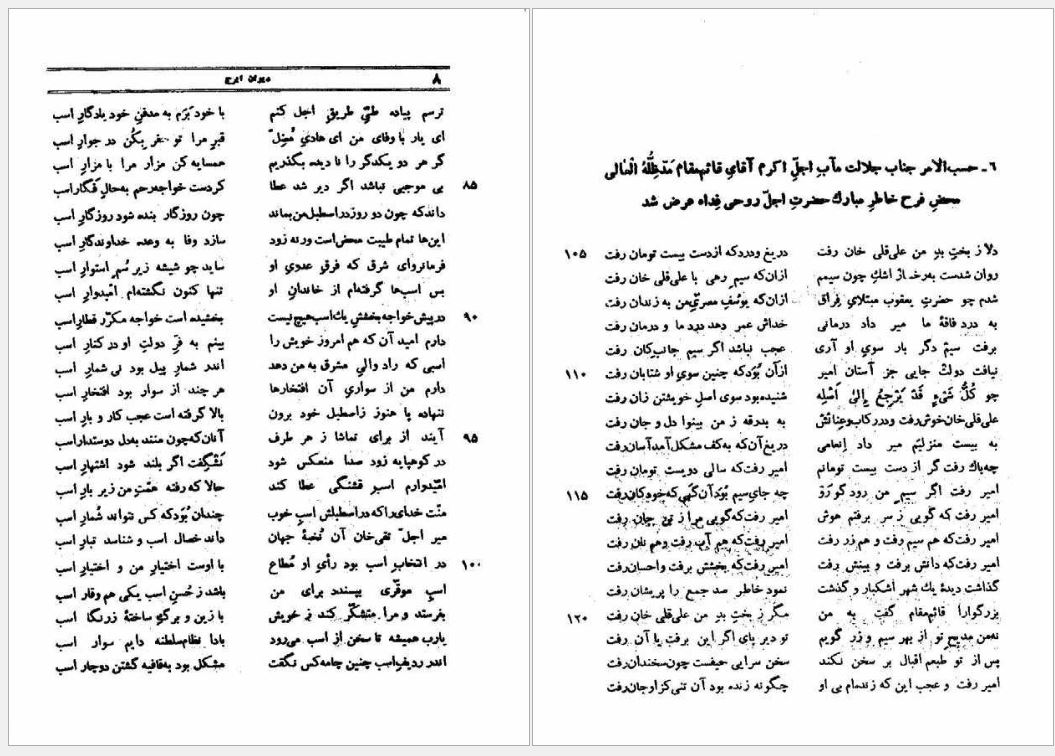 ۸ دیوان ایرج
ترسم پیاده طیِّ طریقِ اجل کنم با خود بَرَم به مدفنِ خود یادگارِ اسب
ای یار با وفای من ای هادیِ مُضِلّ قبرِ مرا تو حفر بِکُن در جوارِ اسب
گر هر دو یکدگر را نا دیده بگذریم همسایه کن مزار مرا با مزارِ اسب
بی موجبی نباشد اگر دیر شد عطا کردست خواجه رحم به حالِ فگارِ اسب ۸۵
داند که چون دو روز در اصطبل من بماند چون روزگار بنده شود روزگارِ اسب
این‌ها تمام طیبت محض است ورنه زود سازد وفا به وعده خداوندگارِ اسب
فرمانروای شرق که فرقِ عدوی او ساید چو شیشه زیر سُمِ استوارِ اسب
بس اسب‌ها گرفته‌ام از خاندان او تنها کنون نگشته‌ام امّیدوارِ اسب
در پیش خواجه بخششِ یك اسب هیچ نیست بخشیده است خواجه مکرّر قطارِ اسب ۹۰
دارم امید آن که هم امروز خویش را بینم به فرِّ دولتِ او در کنارِ اسب
اسبی که راد والیِ مشرق به من دهد اندر شمارِ پیل بود نی شمارِ اسب
دارم من از سواریِ آن افتخارها هر چند از سوار بود افتخارِ اسب
ننهاده پا هنوز ز اصطبل خود برون بالا گرفته است عجب کار و بارِ اسب
آیند از برای تماشا ز هر طرف آنان که چون منند به دل دوستدارِ اسب ۹۵
در کوهپایه زود صدا منعکس شود نَشگِفت اگر بلند شود اشتهارِ اسب
امّیدوارم اسبِ قشنگی عطا کند حالا که رفته همّتِ من زیر بارِ اسب
منّت خدای را که در اصطبلش اسبِ خوب چندان بُوَد که کس نتواند شُمارِ اسب
میر اجلّ تقی‌خان آن نُخبهٔ جهان داند خصال اسب و شناسد تبارِ اسب
در انتخاب اسب بود رأی او مُطاع با اوست اختیارِ من و اختیارِ اسب ۱۰۰
اسبِ موقّری بپسندد برای من باشد ز حُسنِ اسب یکی هم وقارِ اسب
بفرستد و مرا متشکّر کند ز خویش با زین و برگ و ساختهٔ زرنگارِ اسب
یارب همیشه تا سخن از اسب می‌رود بادا نظام‌سلطنه دایم سوارِ اسب
اندر ردیفِ اسب چنین چامه کس نگفت مشکل بود به قافیه گشتن دوچارِ اسب
۶ـ حسب‌الامر جناب جلالت مآب اجلّ اکرم آقایِ قائم‌مقام مَدّظِلُّهُ العالی
محضِ فرح خاطرِ مبارك حضرتِ اجلّ روحی فِداه عرض شد
دلا ز بختِ بدِ من علی‌قلی خان رفت دریغ و درد که از دست بیست تومان رفت ۱۰۵
روان شدست به رخ از اشك چون سیمم ازان که سیمِ رهی با علی‌قلی خان رفت
شدم چو حضرتِ یعقوب مبتلایِ فِراق ازان که یوسُفِ مصریِّ من به زندان رفت
به دردِ فاقهٔ ما میر داد درمانی خداش عمر دهد دردِ ما و درمان رفت
برفت سیم دگر بار سویِ او آری عجب نباشد اگر سیم جانبِ کان رفت
نیافت دولتْ جایی جز آستانِ امیر از آن بُوَد که چنین سویِ او شتابان رفت ۱۱۰
چو کُلُّ شَیءٍ قَدْ یَرْجِعُ إِلیٰ اَصْلِه شنیده بود سوی اصلِ خویشتن زان رفت
علی‌قلی خان خوش رفت و در رکاب و عِنانش به بدرقه ز من بینوا دل و جان رفت
به بیست منزلیم میر داد اِنعامی دریغ آن که به کف مشکل آمد آسان رفت
چه باك رفت گر از دست بیست تومانم امیر رفت که سالی دویست تومان رفت
امیر رفت اگر سیمِ من رود گو رَوْ چه جای سیم بُوَد آن گهی که خود کان رفت ۱۱۵
امیر رفت که گویی ز سر برفتم هوش امیر رفت که گویی مرا ز تن جان رفت
امیر رفت که هم سیم رفت و هم زر رفت امیر رفت که هم آب رفت و هم نان رفت
امیر رفت که دانش برفت و بینش رفت امیر رفت که بخشش برفت و احسان رفت
گذاشت دیدهٔ یك شهر اشکبار و گذشت نمود خاطرِ صد جمع را پریشان رفت
بزرگوارا قائم‌مقام گفت به من مگر ز بختِ بدِ من علی‌قلی خان رفت ۱۲۰
نه من مدیحِ تو از بهر سیم و زر گویم تو دیر پای اگر این برفت یا آن رفت
پس از تو طبعم اقبال بر سخن نکند سخن سرایی حیفست چون سخندان رفت
امیر رفت و عجب این که زنده‌ام بی او چگونه زنده بود آن تنی کز او جان رفت